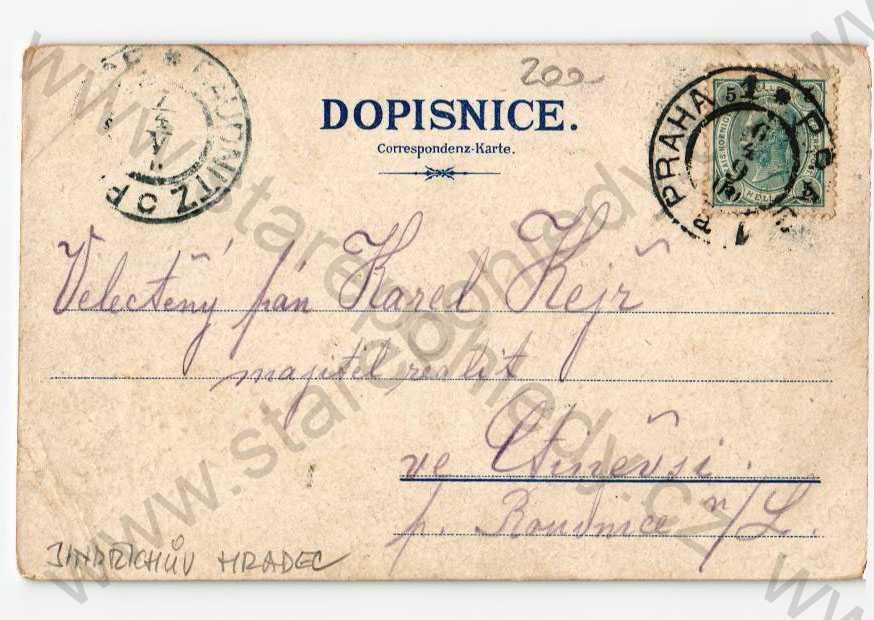 200
DOPISNICE.
Correspondenz-Karte.
RAUDNITZ
PRAHA 1
5
5
Velectěný pán Karel Kejř
majitel realit
ve Ctiněvsi.
p. Roudnice n/L.
JINDŘICHŮV HRADEC
www.starepohledy.cz